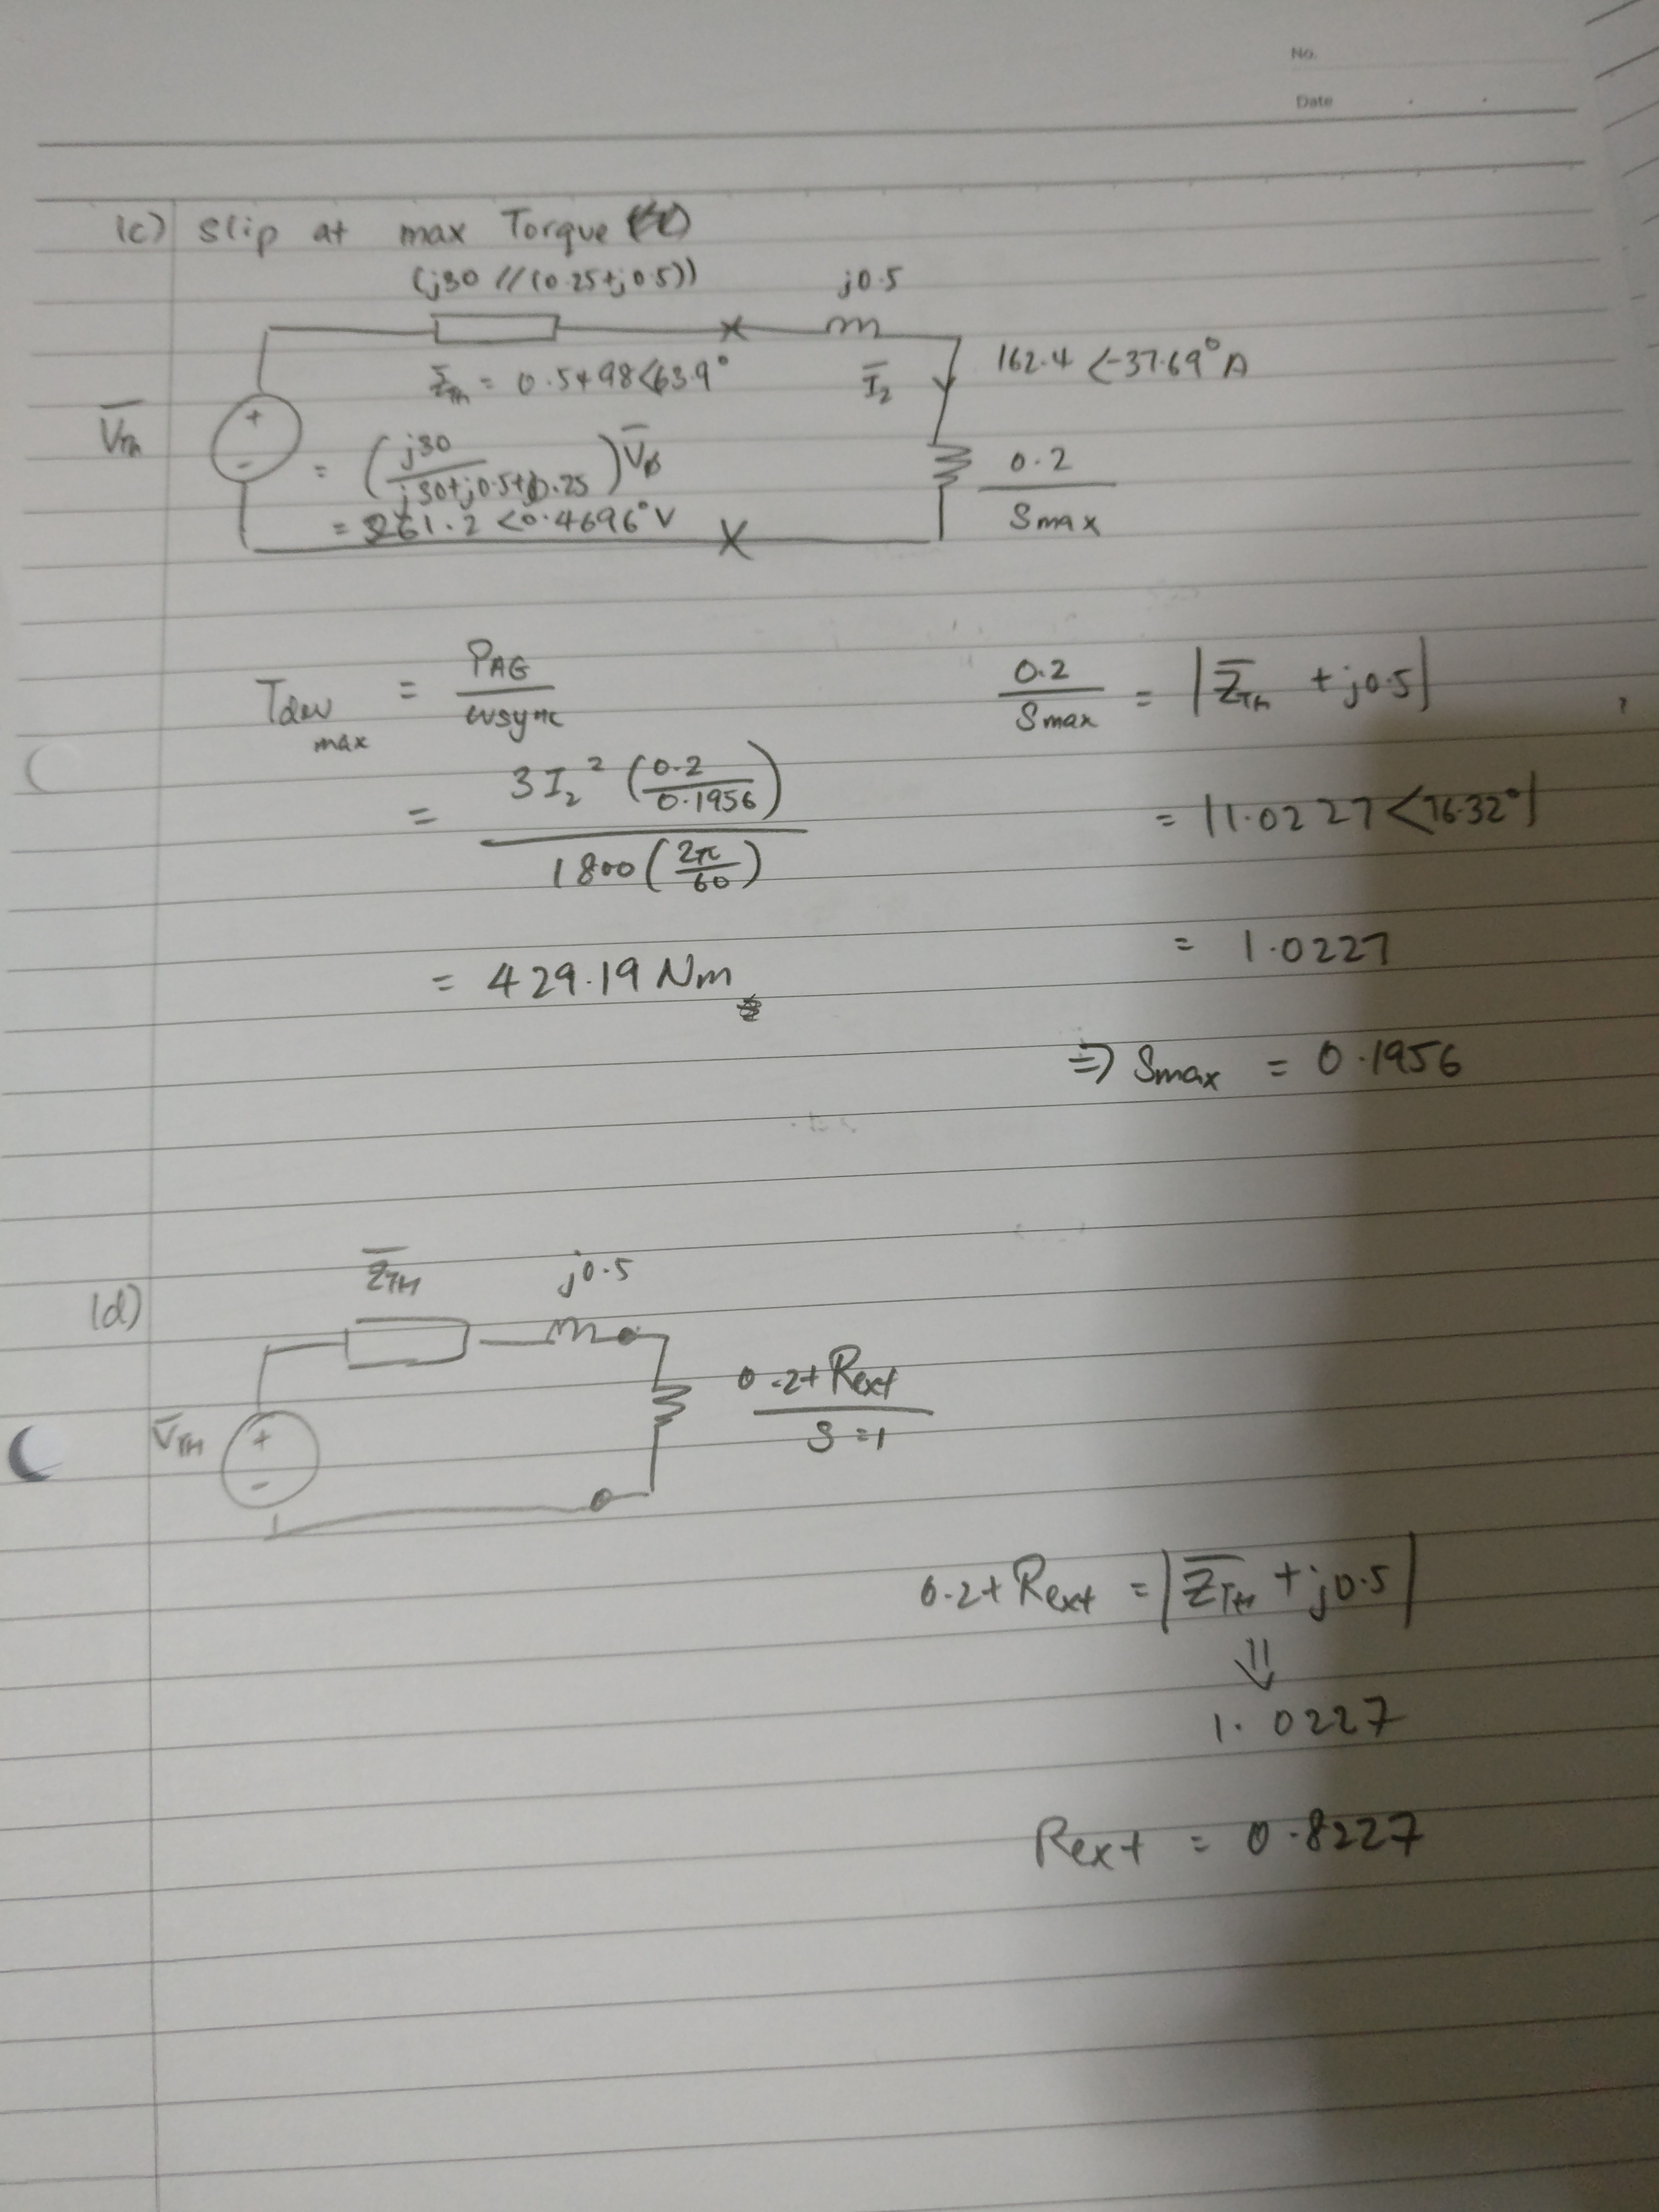 No.
Date
(c) Slip at max Torque
(j30 // (0.25+j0.5))
j0.5
Z̅Th = 0.5498<63.9°
I̅2
162.4 <-37.69° A
V̅Th
+
-
= (j30 / j30+j0.5+0.25) V̅ϕ
= 261.2 <0.4696° V
0.2 / Smax
Tdev max = PAG / ωsync
0.2 / Smax = |Z̅Th + j0.5|
= 3I2² (0.2 / 0.1956) / 1800 (2π / 60)
= |1.0227 <76.32°|
= 429.19 Nm
= 1.0227
⇒ Smax = 0.1956
(d)
Z̅TH
j0.5
V̅TH
+
-
0.2+Rext / S=1
0.2+Rext = |Z̅TH + j0.5|
⇓
1.0227
Rext = 0.8227